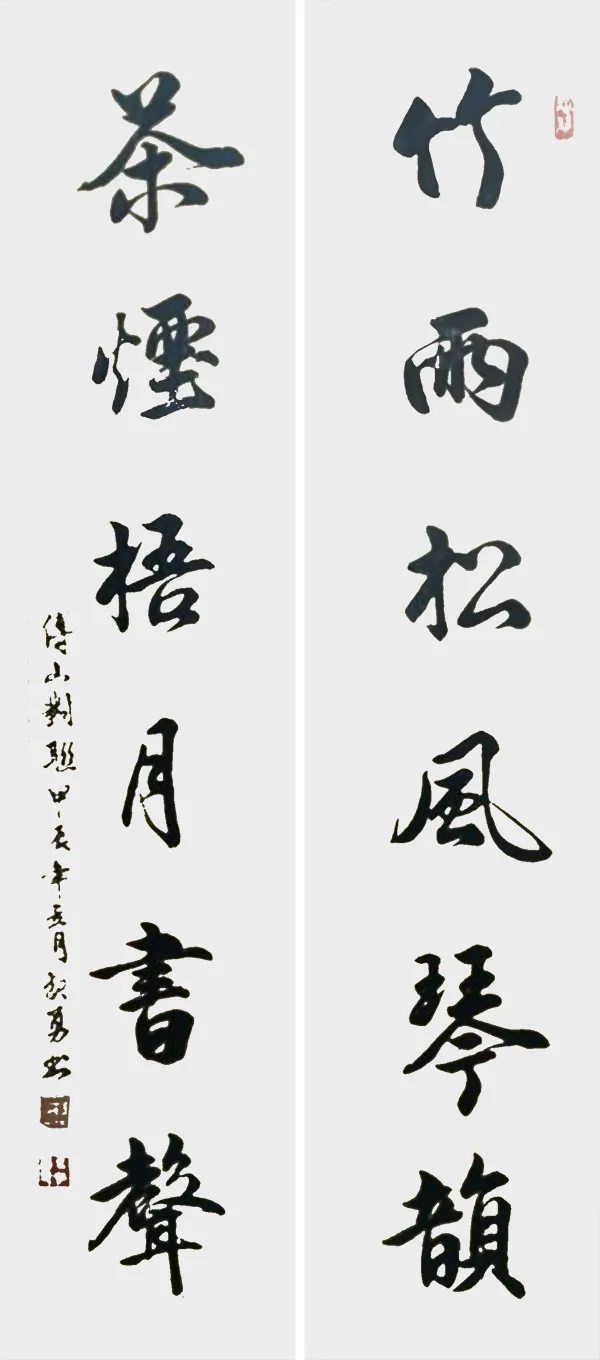 竹雨松風琴韻
茶煙梧月書聲
傅山對聯甲辰年
月
勇書